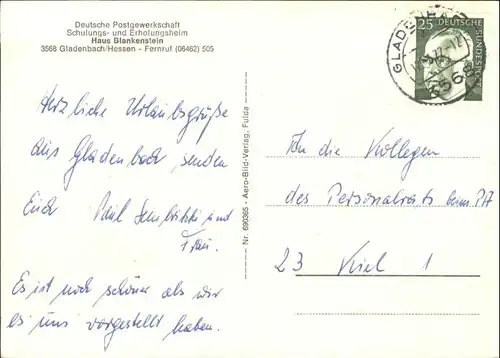 Deutsche Postgewerkschaft
Schulungs- und Erholungsheim
Haus Blankenstein
3568 Gladenbach/Hessen - Fernruf (06462) 505
25 DEUTSCHE BUNDESPOST
GLADENBACH
3568
Herzliche Urlaubsgrüße
aus Gladenbach senden
Euch Paul und
Frau.
Es ist noch schöner als wir
es uns vorgestellt haben.
Nr. 690365 - Aero-Bild-Verlag, Fulda
An die Kollegen
des Personalrats beim PA
23 Kiel 1